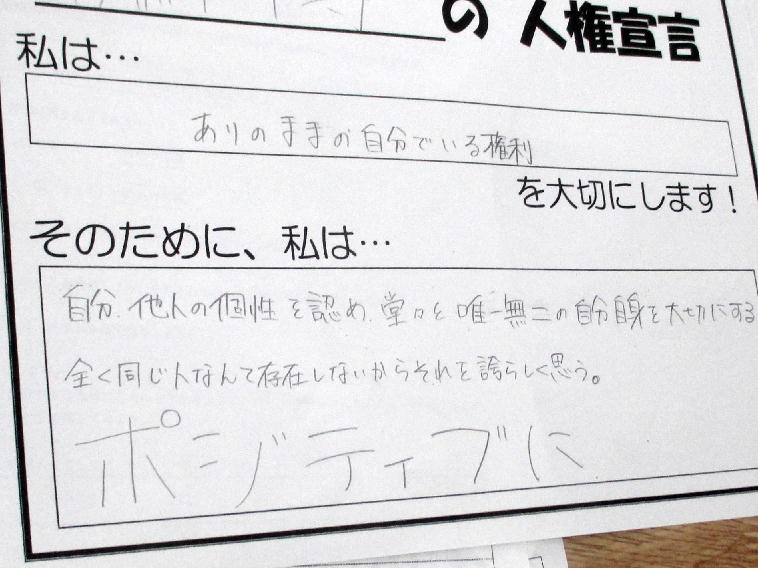 の 人権宣言
私は…
ありのままの自分でいる権利
を大切にします！
そのために、私は…
自分、他人の個性を認め、堂々と唯一無二の自分自身を大切にする
全く同じ人なんて存在しないからそれを誇らしく思う。
ポジティブに